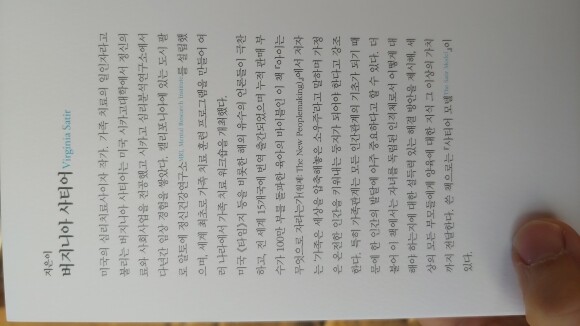 지은이
버지니아 사티어 Virginia Satir
미국의 심리치료사이자 작가. 가족 치료의 일인자라고
불리는 버지니아 사티어는 미국 시카고대학에서 정신의
료와 사회사업을 전공했고 시카고 심리분석연구소에서
다년간 임상 경험을 쌓았다. 캘리포니아에 있는 도시 팔
로 알토에 정신건강연구소MRI, Mental Research Institute를 설립했
으며, 세계 최초로 가족 치료 훈련 프로그램을 만들어 여
러 나라에서 가족 치료 워크숍을 개최했다.
미국 《타임》지 등을 비롯한 해외 유수의 언론들이 극찬
하고, 전 세계 15개국에 번역 출간되었으며 누적 판매 부
수가 100만 부를 돌파한 육아의 바이블인 이 책 『아이는
무엇으로 자라는가(원제: The New Peoplemaking)』에서 저자
는 '가족은 세상을 압축해놓은 소우주'라고 말하며 가정
은 온전한 인간을 키워내는 둥지가 되어야 한다고 강조
한다. 특히 가족관계는 모든 인간관계의 기초가 되기 때
문에 한 인간의 발달에 아주 중요하다고 할 수 있다. 더
불어 이 책에서는 자녀를 독립된 인격체로서 어떻게 대
해야 하는지에 대한 설득력 있는 해결 방안을 제시해, 세
상의 모든 부모들에게 양육에 대한 지식 그 이상의 가치
까지 전달한다. 쓴 책으로는 『사티어 모델The Satir Model』이
있다.